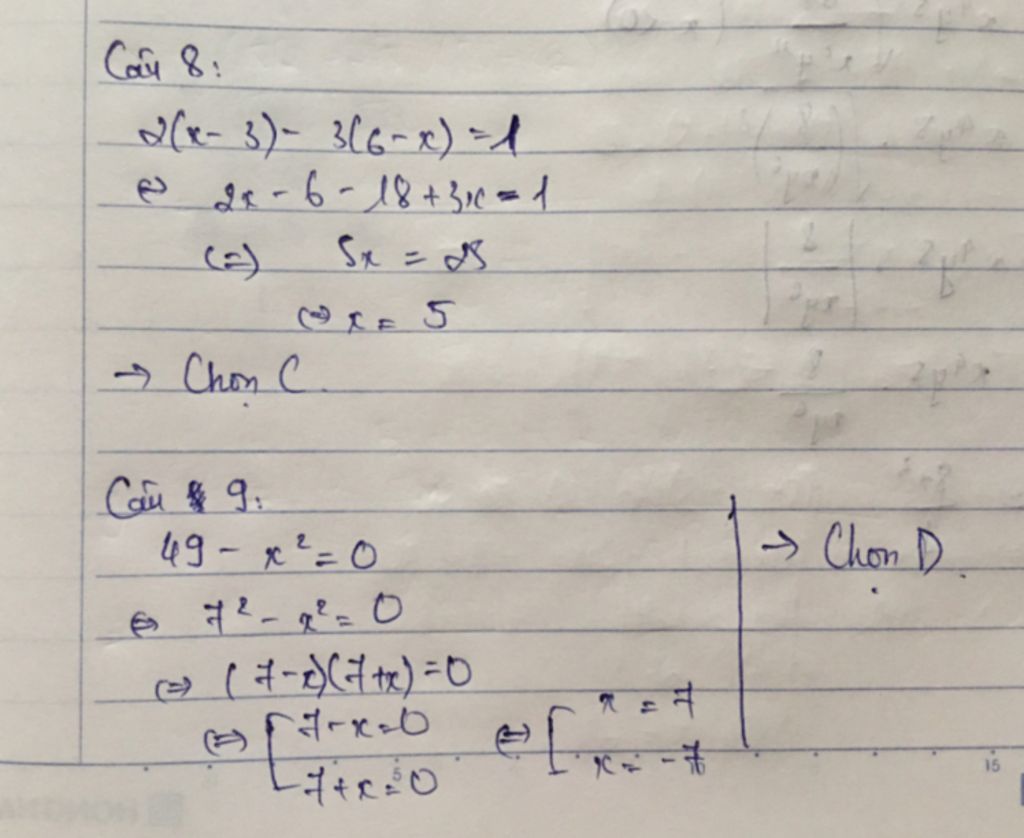 Câu 8:
2(x-3)-3(6-x)=1
⇔ 2x-6-18+3x=1
⇔ 5x=25
⇔ x=5
→ Chọn C.
Câu 9:
49-x²=0
⇔ 7²-x²=0
⇔ (7-x)(7+x)=0
⇔ [ 7-x=0 ⇔ [ x=7
7+x=0 x=-7
→ Chọn D.
5 15